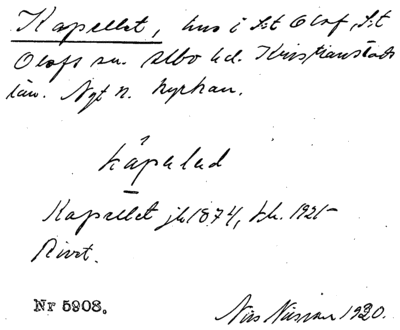 Kapellet, hus i S:t Olof, S:t
Olofs sn. Albo hd. Kristianstads
län. Nytt n. Nyhan.
kápelad
Kapellet jb 1874, bl. 1921
Rivet.
Nr 5908.
Nils Nilsson 1920.